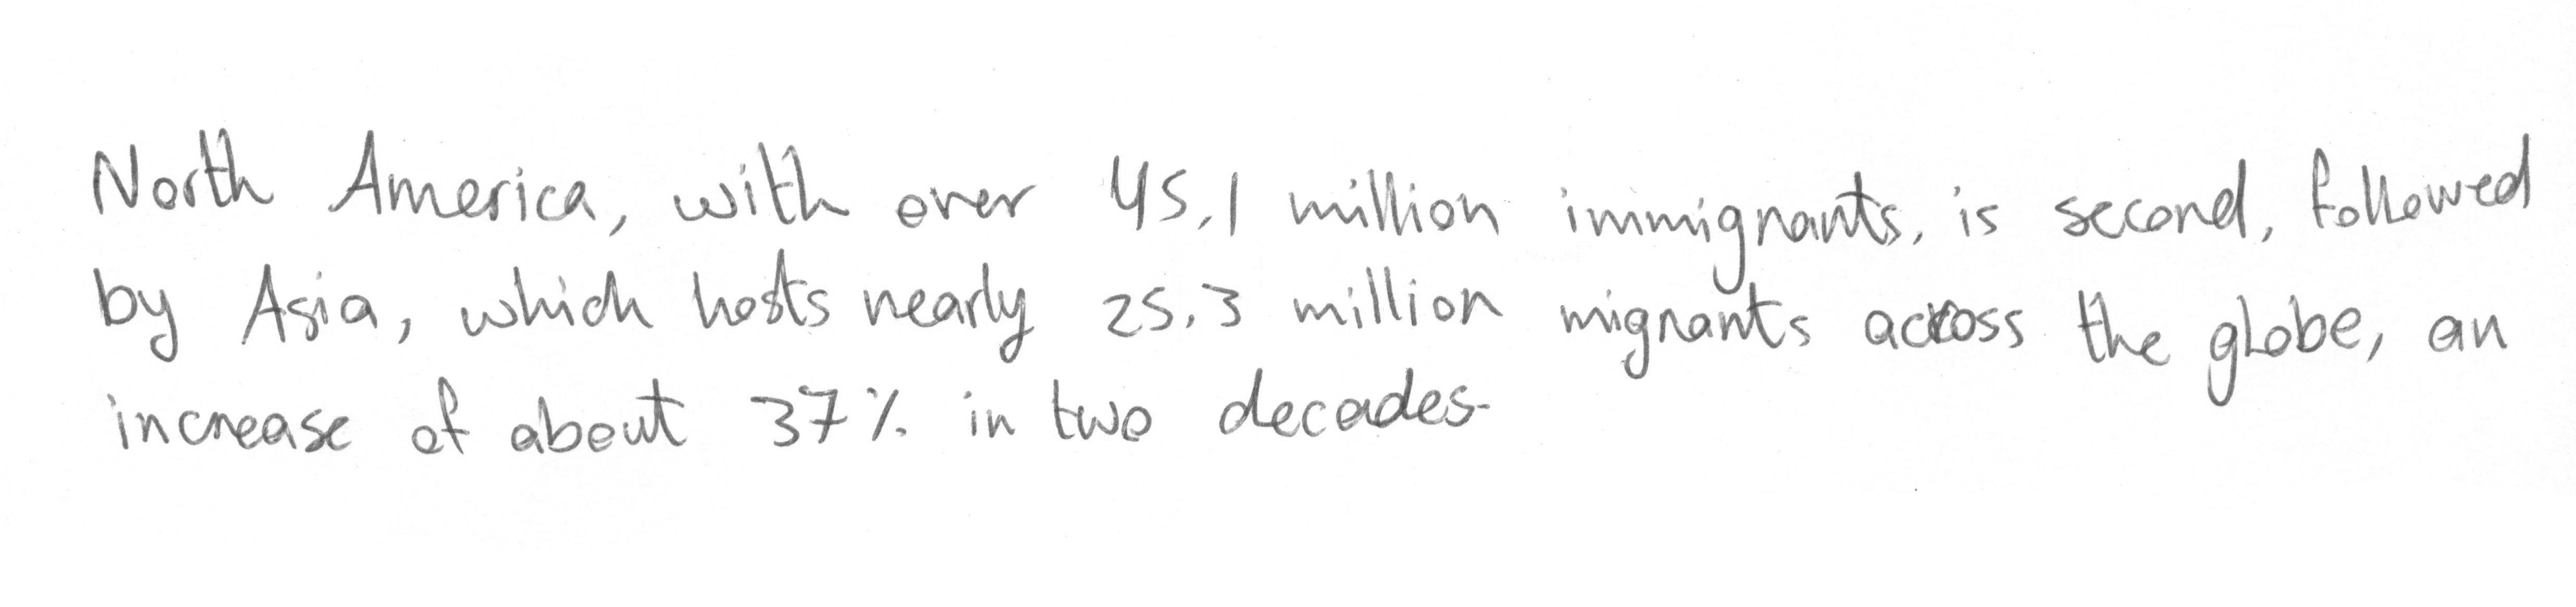 North America, with over 45.1 million immigrants, is second, followed
by Asia, which hosts nearly 25.3 million migrants across the globe, an
increase of about 37% in two decades.